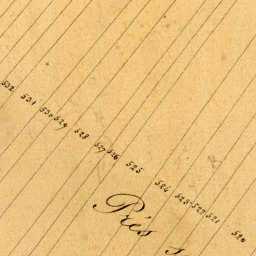 532 531 530 529 528 527 526 525 524 523 522 521 520
Prés